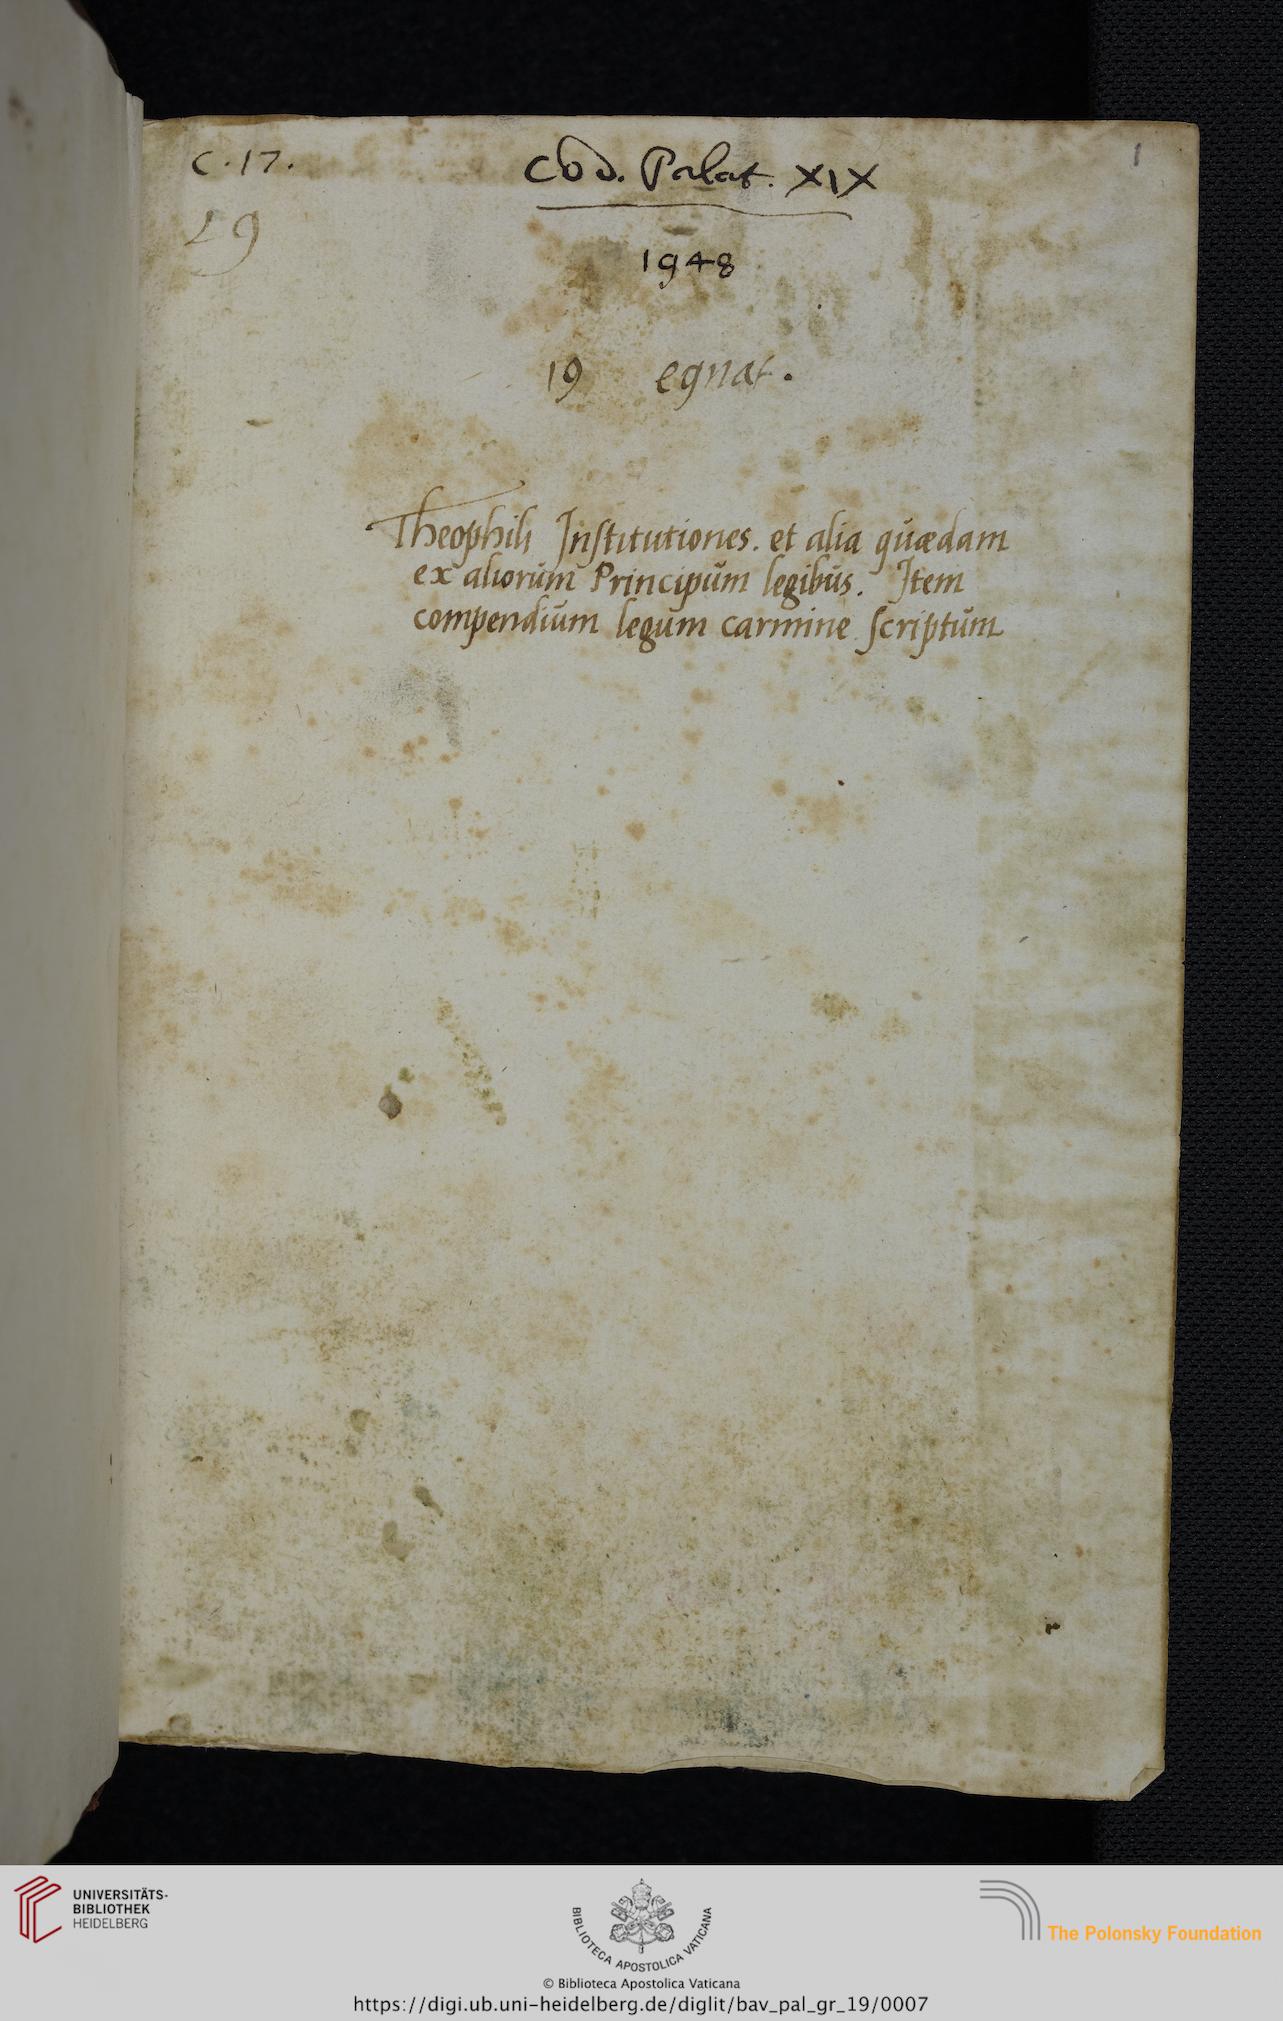 C. 17.
Cod. Palat. XIX
1
29
1948
19 egnat.
Theophili Institutiones. et alia quædam
ex aliorum Principum legibus. Item
compendium legum carmine scriptum
UNIVERSITÄTS-
BIBLIOTHEK
HEIDELBERG
BIBLIOTECA APOSTOLICA VATICANA
The Polonsky Foundation
© Biblioteca Apostolica Vaticana
https://digi.ub.uni-heidelberg.de/diglit/bav_pal_gr_19/0007